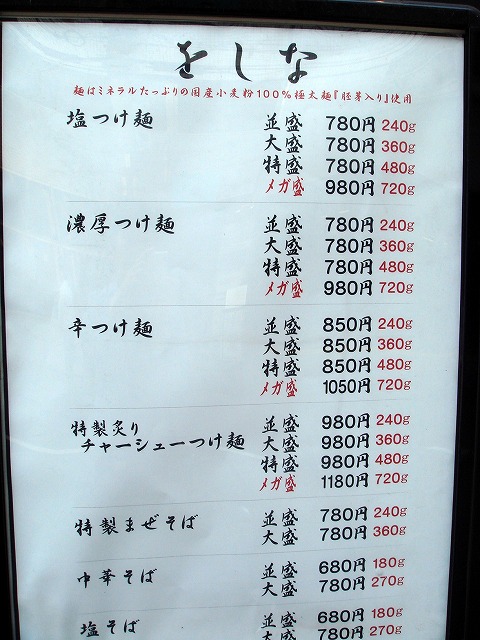 をしな
麺はミネラルたっぷりの国産小麦粉100%極太麺『胚芽入り』使用
塩つけ麺 並盛 780円 240g
大盛 780円 360g
特盛 780円 480g
メガ盛 980円 720g
濃厚つけ麺 並盛 780円 240g
大盛 780円 360g
特盛 780円 480g
メガ盛 980円 720g
辛つけ麺 並盛 850円 240g
大盛 850円 360g
特盛 850円 480g
メガ盛 1050円 720g
特製炙り
チャーシューつけ麺 並盛 980円 240g
大盛 980円 360g
特盛 980円 480g
メガ盛 1180円 720g
特製まぜそば 並盛 780円 240g
大盛 780円 360g
中華そば 並盛 680円 180g
大盛 780円 270g
塩そば 並盛 680円 180g
大盛 780円 270g